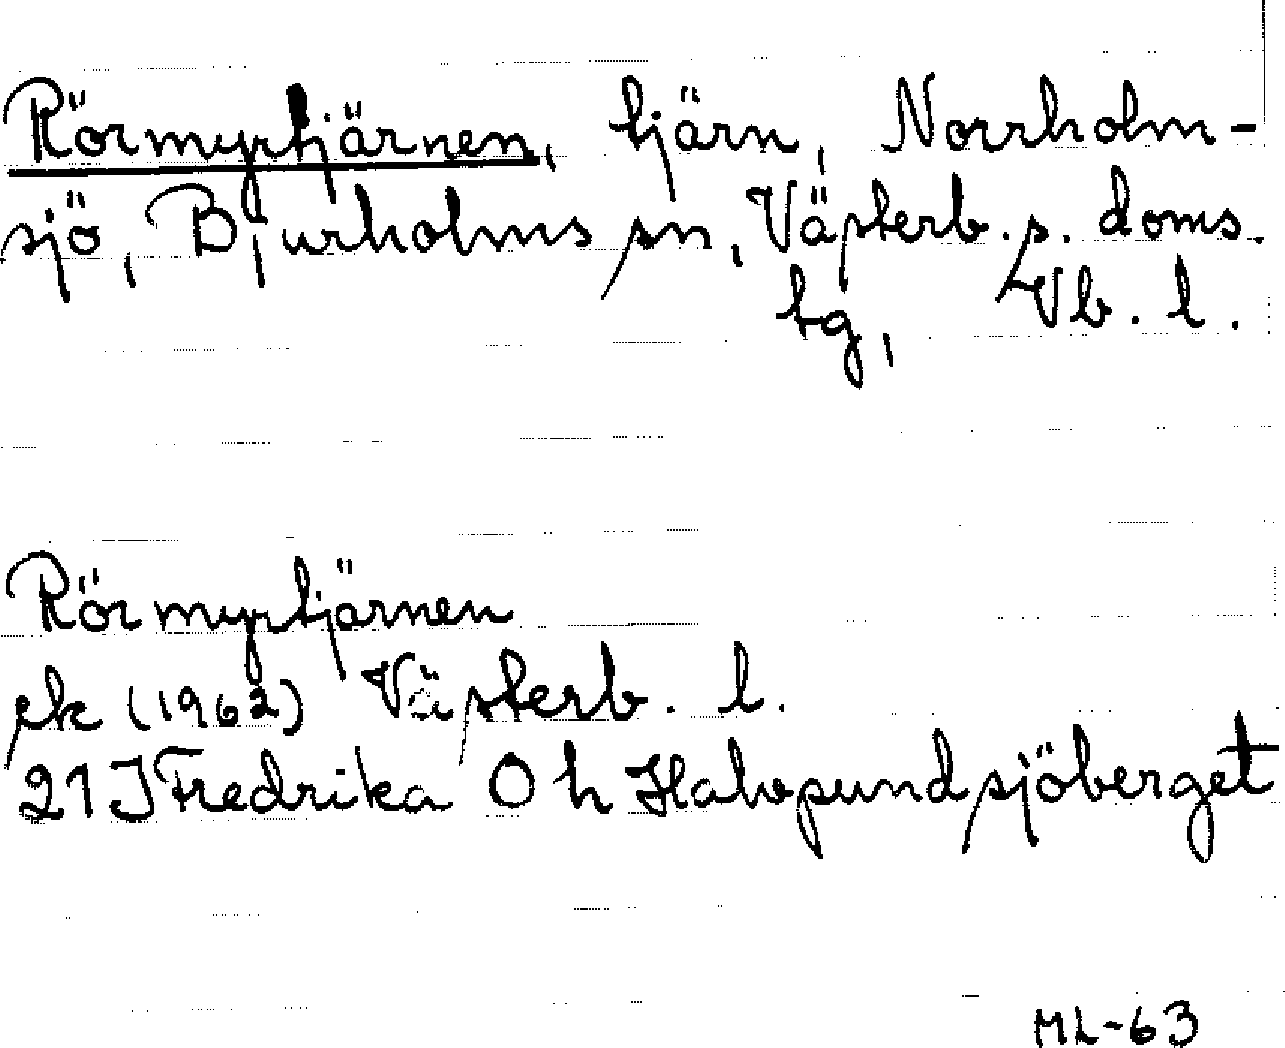 Rörmyrtjärnen, tjärn, Norrholm-
sjö, Bjurholms sn, Västerb. s. doms.
tg, Vb. l.
Rörmyrtjärnen
ek (1962) Västerb. l.
21 J Fredrika O h Halvpundsjöberget
ML-63